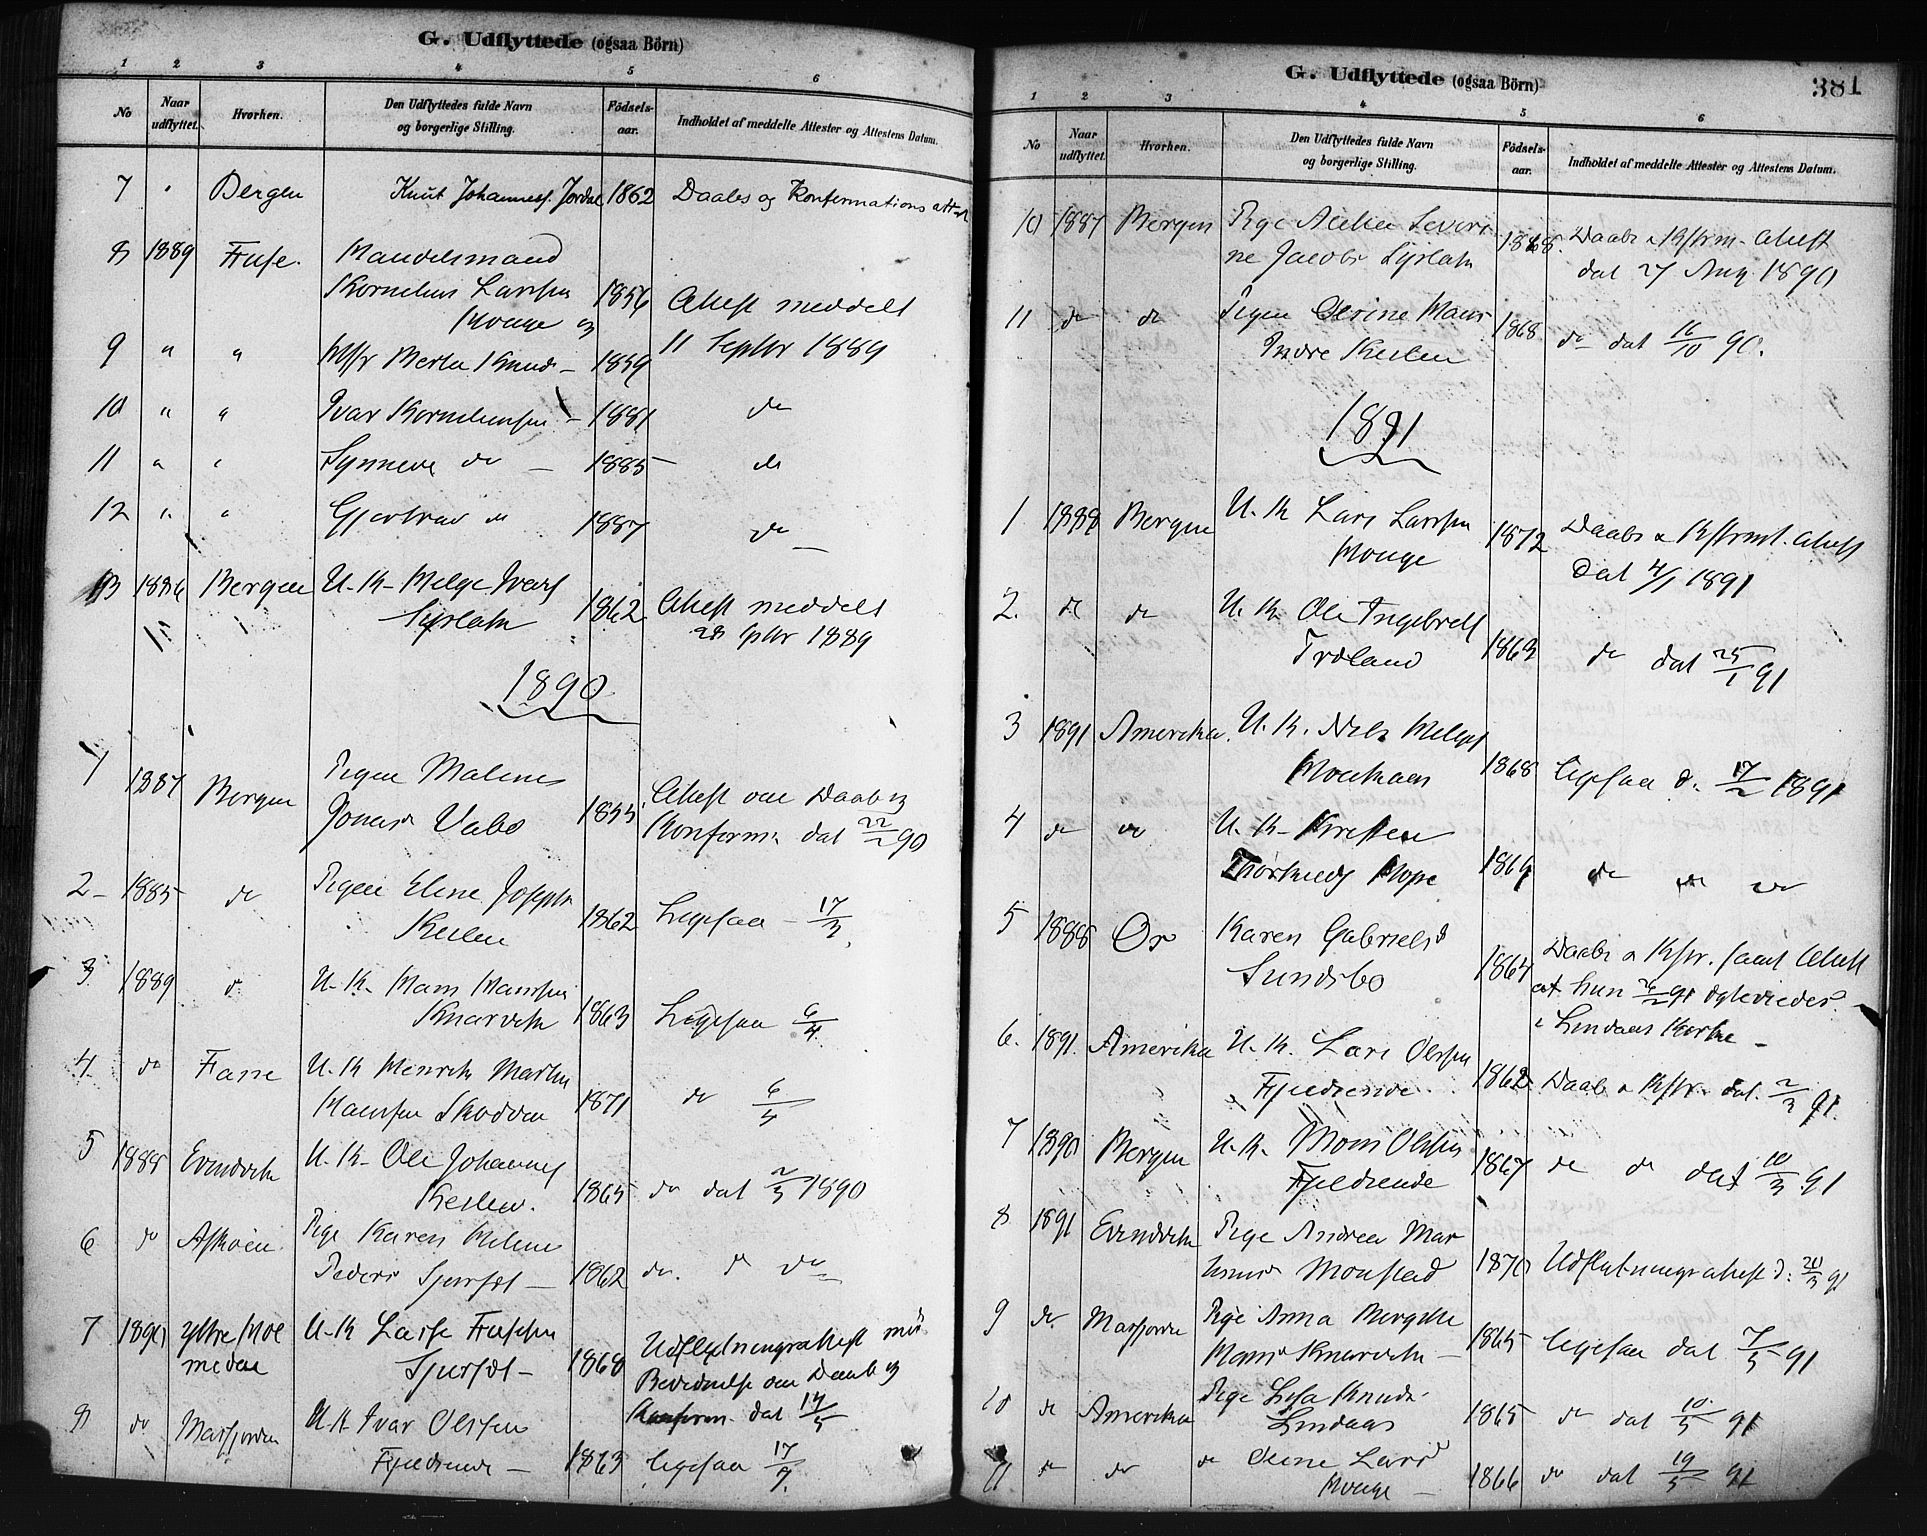 G. Udflyttede (ogsaa Börn)
1 2 3 4 5 6
No Naar udflyttet. Hvorhen. Den Udflyttedes fulde Navn og borgerlige Stilling. Födsels-aar. Indholdet af meddelte Attester og Attestens Datum.
7 " Bergen Knut Johanness. Jordal 1862 Daabs og Konfirmations att
8 1889 Fuse. Handelsmand
Kornelius Larssen 1856 Attest meddelt
Mouge og
9 " " Berta Knuds - 1859 11 Septbr 1889
10 " " Ivar Korneliussen - 1881 do
11 " " Synneve do - 1885 do
12 " " Gjertrud do 1887 do
13 1886 Bergen U. K. Helge Ivers
1862 Attest meddelt
28 Sptbr 1889
1890
1 1887 Bergen Pigen Malene
Jonasd Vabö 1855 Attest om Daab og
Konform. dat 22/2 90
2 1885 do Pigen Eline Josephs
Keilen 1862 Ligesaa - 17/3.
3 1889 do U. K. Hans Hanssen
Knarvik 1863 Ligesaa 6/4
4 do Fane U. K. Henrik Martin
Hanssen Skodven 1871 do 6/4
5 1888 Evindvik U. K. Ole Johannes
Keilen. 1865 do dat 2/5 1890
6 do Askøen Pige Karen Helene
Peders Sjursæt - 1862 do. do do
7 1890 Ytre Hol- U. K. Lasse
medal Sjursæt - 1868 Udflytningsattest m
Bevidnelse om Daab og
Konform. dat 14/5
8 do Masfjorden U. K. Ivar Olssen
Fjeldsende - 1863 ligesaa 17/9.
G. Udflyttede (ogsaa Börn) 381
1 2 3 4 5 6
No Naar udflyttet. Hvorhen. Den Udflyttedes fulde Navn og borgerlige Stilling. Födsels-aar. Indholdet af meddelte Attester og Attestens Datum.
10 1887 Bergen Pige Severi-
ne Jacobs 1868. Daabs & Kfirm. Attest
dat 27 Aug. 1890
11 do do Pigen Hans
Indre Keilen 1868 do dat 16/10 90.
1891
1 1888 Bergen U. K. Lars Larssen
Mouge 1872 Daabs & Kfirmt. Attest
dat 4/1 1891
2. do do U. K. Ole Ingebrett
Troland 1863 do dat 25/1 91
3 1891 Amerika. U. K. Nels
1868 ligesaa d. 17/2 1891
4 do do U. K. Kristen
Hope 1869 do do do
5 1888 Os Karen Gabrielsd
Sundsbö 1864 Daabs & Kfir. samt Attest
at hun 26/2 91 ægteviedes
i Lindaas Kirke -
6. 1891. Amerika U. K. Lars Olssen
Fjeldsende. 1862 Daabs & Kfir. dat. 2/3 91.
7 1890 Bergen U. K. Mons Olssen
Fjeldsende 1867 do do dat 10/3 91
8 1891 Evindvik Pige Andrea Mar-
Monstad 1870 Udflytningsattest d. 20/3 91
9 do Masfjorden Pige Anna Bergitte
Hansd Knarvik - 1865 ligesaa dat 7/5 91
10 do Amerika Pige Lisa Knuds
Lindaas 1865 do dat 10/5 91
11 do do do Oline Larsd
Mouge - 1866 do dat 19/5 91